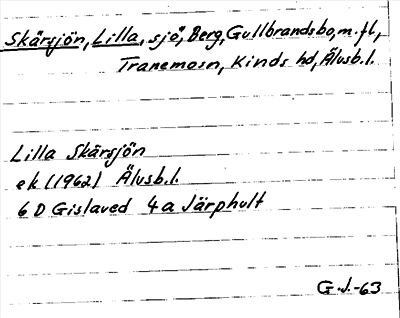 Skärsjön, Lilla, sjö, Berg, Gullbrandsbo, m.fl.,
Tranemosn, Kinds hd, Älvsb.l.
Lilla Skärsjön
ek (1962) Älvsb.l.
6 D Gislaved 4a Järphult
G.J.-63